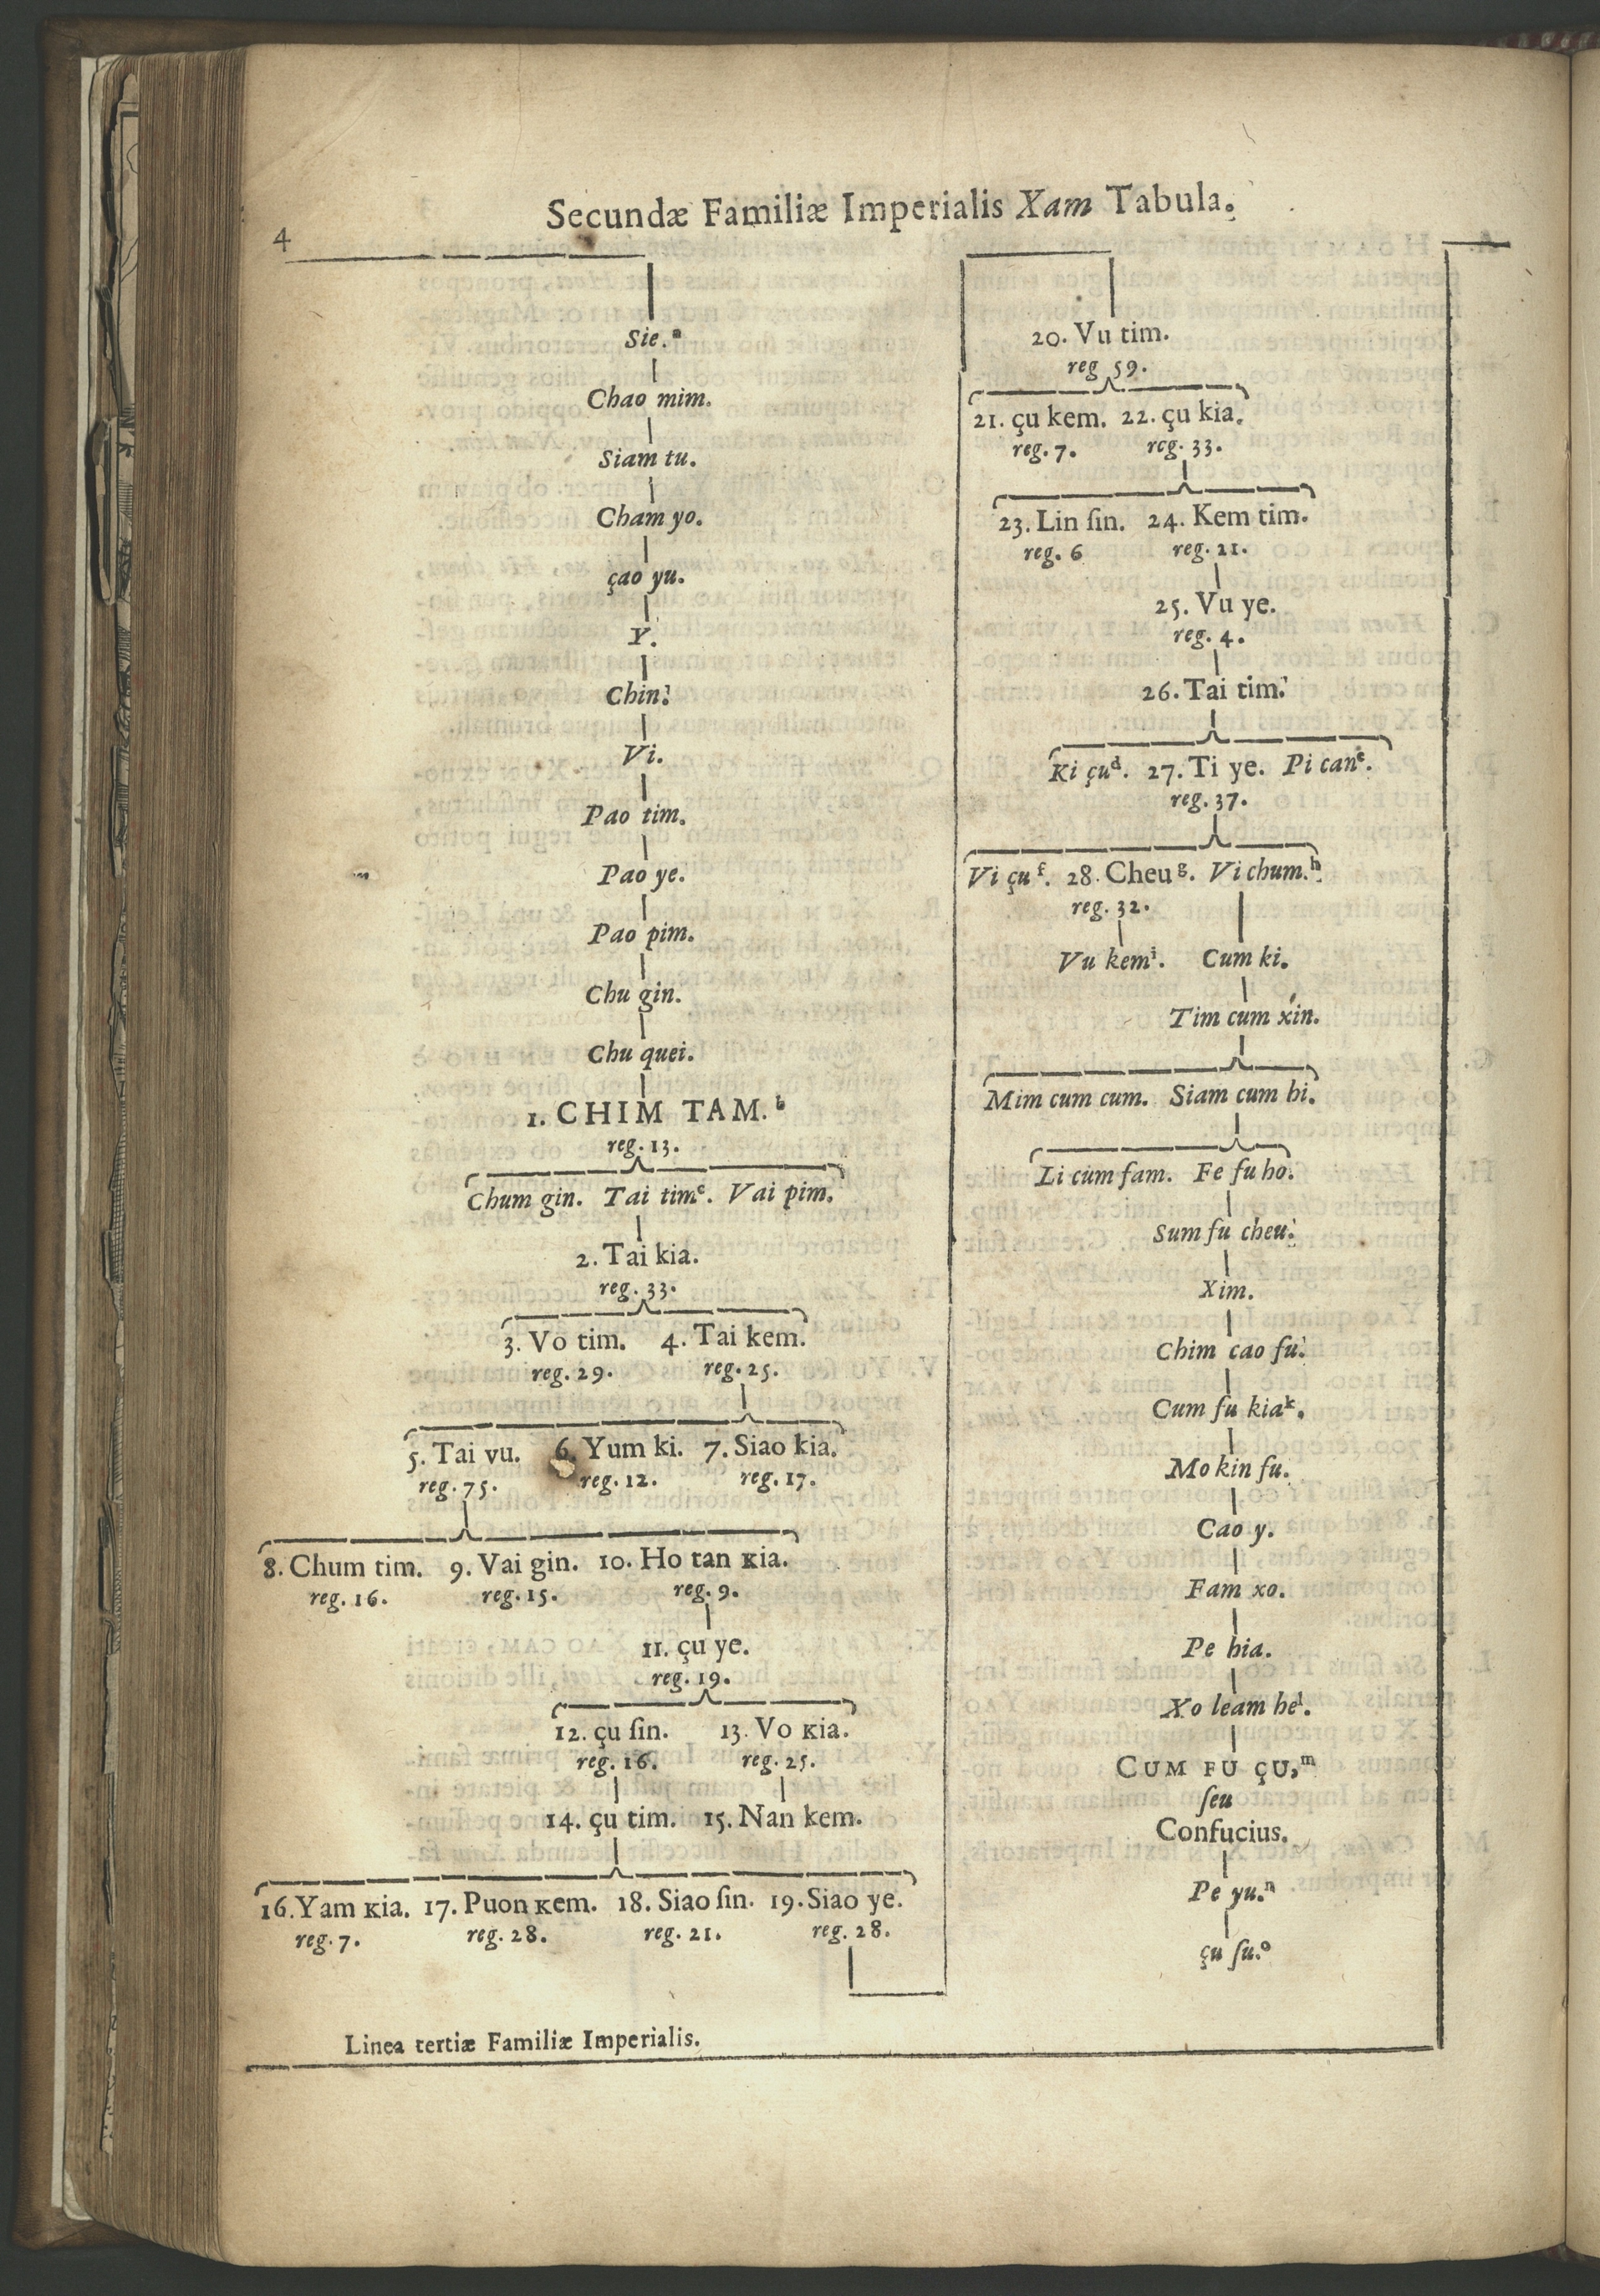 4
Secundæ Familiæ Imperialis Xam Tabula.
Sie.ᵃ
Chao mim.
Siam tu.
Cham yo.
çao yu.
Y.
Chin.
Vi.
Pao tim.
Pao ye.
Pao pim.
Chu gin.
Chu quei.
1. CHIM TAM.ᵇ
reg. 13.
Chum gin. Tai timᶜ. Vai pim.
2. Tai kia.
reg. 33.
3. Vo tim. 4. Tai kem.
reg. 29. reg. 25.
5. Tai vu. 6. Yum ki. 7. Siao kia.
reg. 75. reg. 12. reg. 17.
8. Chum tim. 9. Vai gin. 10. Ho tan kia.
reg. 16. reg. 15. reg. 9.
11. çu ye.
reg. 19.
12. çu ſin. 13. Vo kia.
reg. 16. reg. 25.
14. çu tim. 15. Nan kem.
16. Yam kia. 17. Puon kem. 18. Siao ſin. 19. Siao ye.
reg. 7. reg. 28. reg. 21. reg. 28.
20. Vu tim.
reg 59.
21. çu kem. 22. çu kia.
reg. 7. reg. 33.
23. Lin ſin. 24. Kem tim.
reg. 6 reg. 21.
25. Vu ye.
reg. 4.
26. Tai tim.
Ki çuᵈ. 27. Ti ye. Pi canᵉ.
reg. 37.
Vi çuᶠ. 28. Cheuᵍ. Vi chum.ʰ
reg. 32.
Vu kemⁱ. Cum ki.
Tim cum xin.
Mim cum cum. Siam cum hi.
Li cum fam. Fe fu ho.
Sum fu cheu.
Xim.
Chim cao fu.
Cum fu kiaᵏ.
Mo kin fu.
Cao y.
Fam xo.
Pe hia.
Xo leam heˡ.
CUM FU ÇU,ᵐ
ſeu
Confucius.
Pe yu.ⁿ
çu ſu.ᵒ
Linea tertiæ Familiæ Imperialis.